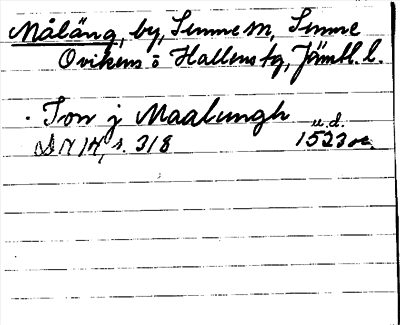 Måläng, by, Sunne sn, Sunne
Ovikens o Hallens tg, Jämtl. l.
. Ion j Maalungh u.d.
DN 14, s. 318 1523 or.